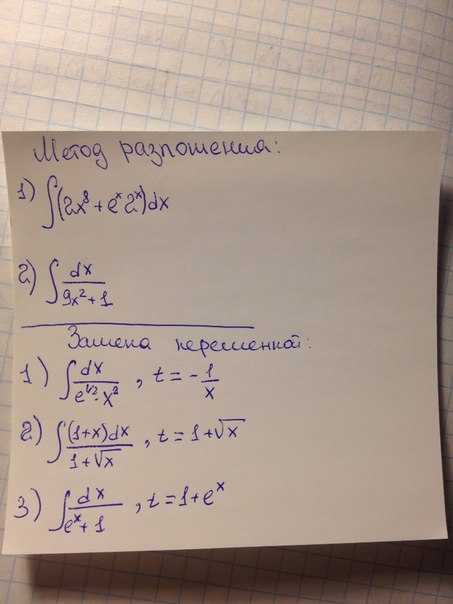 Метод разложения:
1) ∫(2x³ + eˣ2ˣ)dx
2) ∫ dx/(9x²+1)
Замена переменной:
1) ∫ dx/(e^(1/2)·x²) , t = -1/x
2) ∫ (1+x)dx/(1+√x) , t = 1+√x
3) ∫ dx/(eˣ+1) , t = 1+eˣ